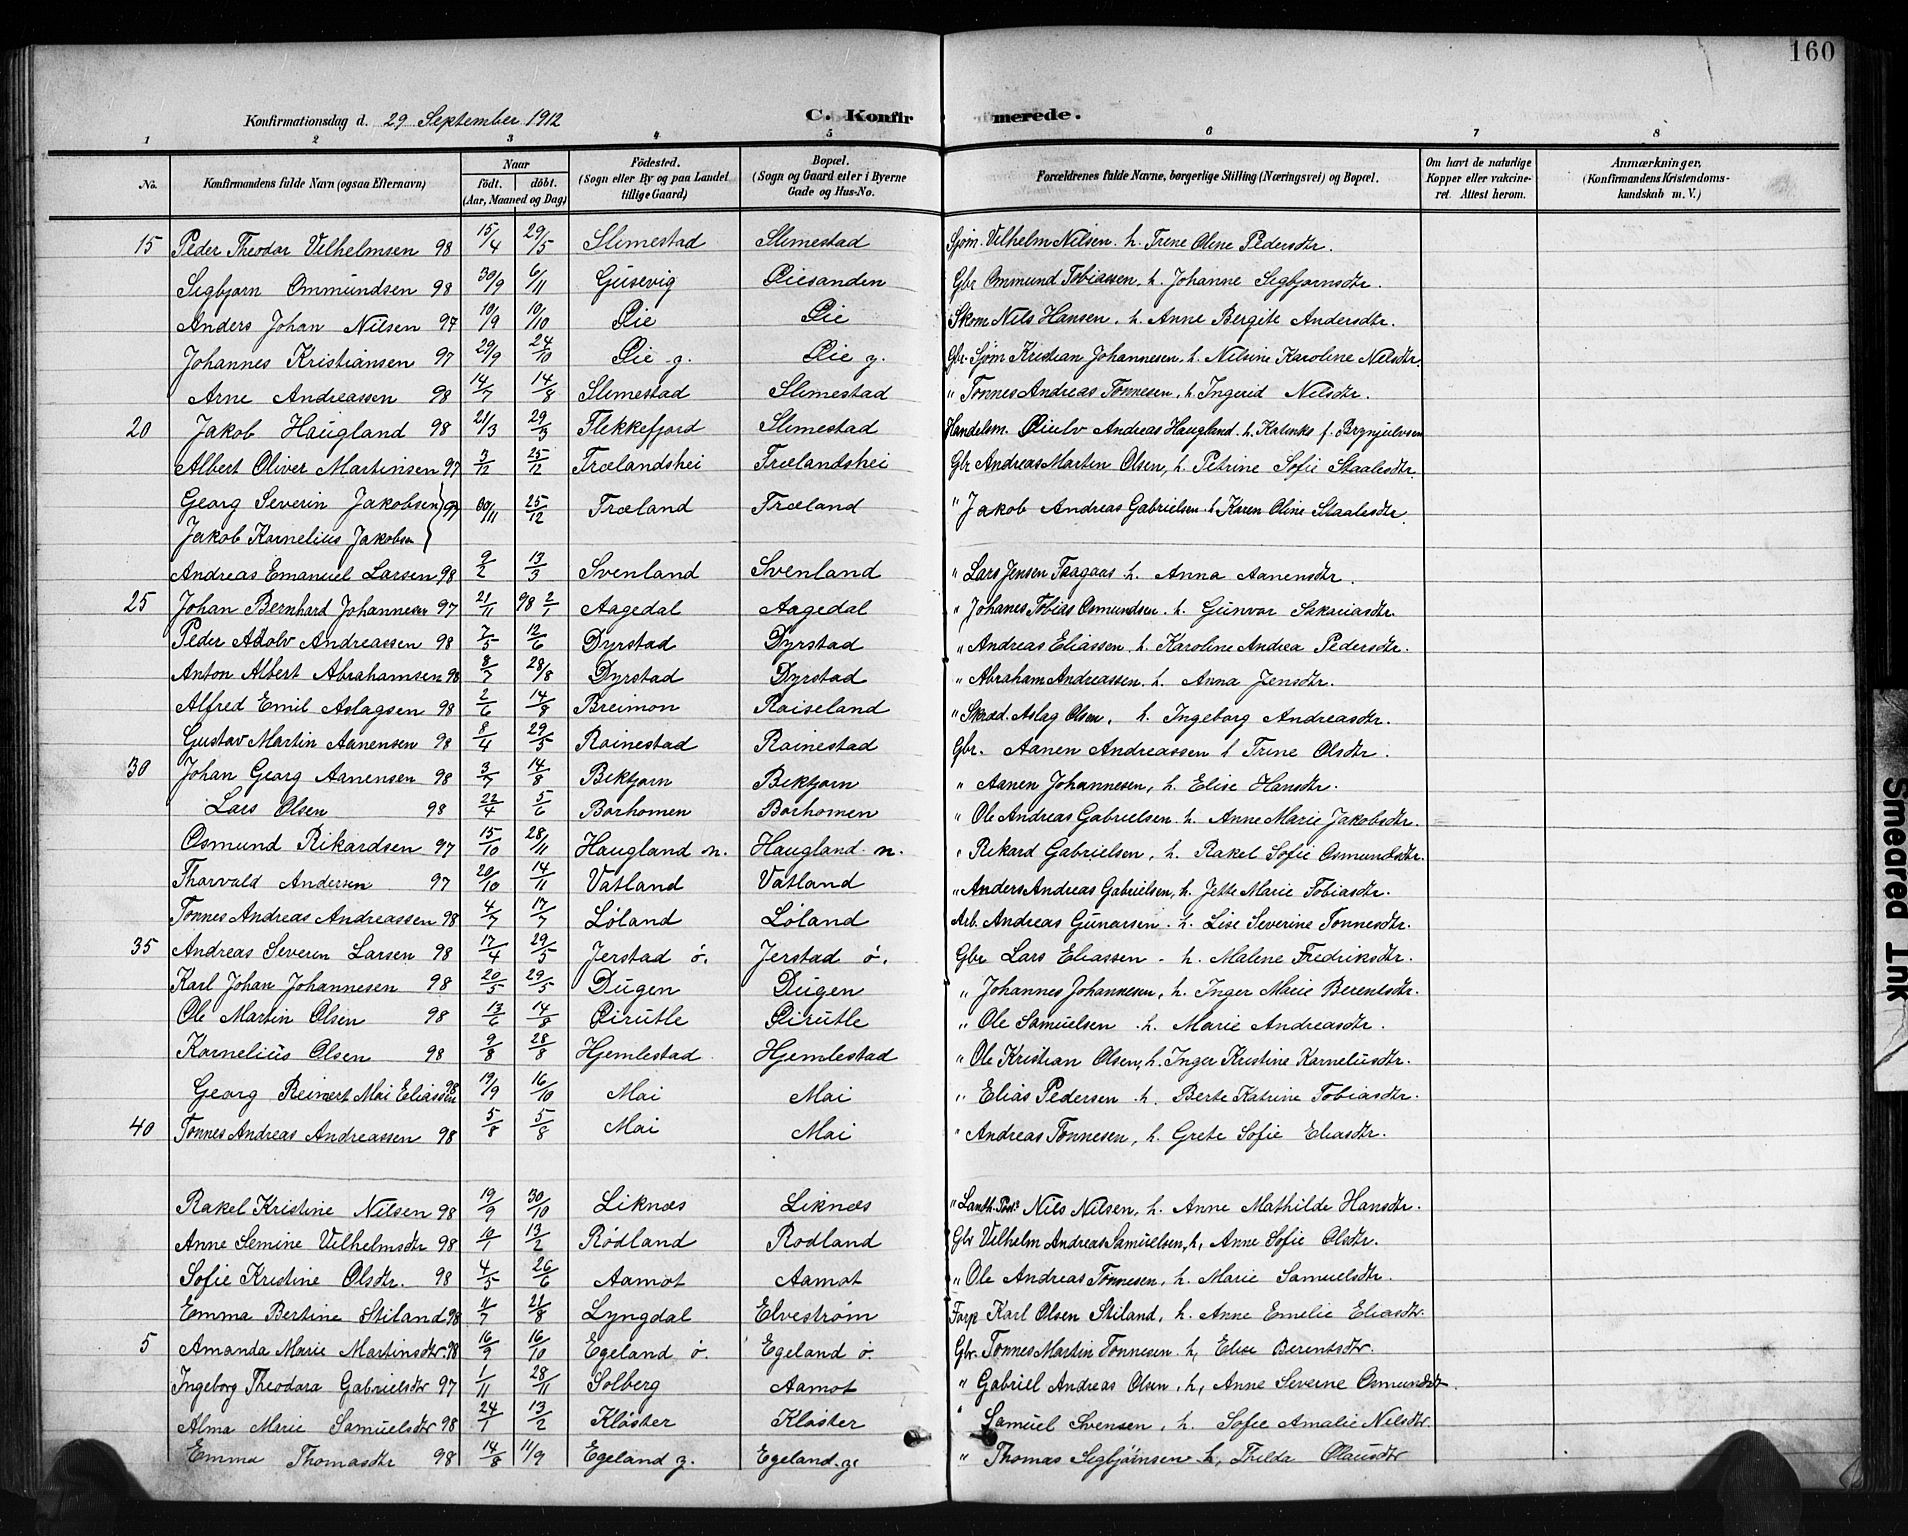 160
Konfirmationsdag d. 29 September 1912 C. Konfir merede.
1 2 3 4 5 6 7 8
No. Konfirmandens fulde Navn (ogsaa Efternavn) Naar født. døbt. (Aar, Maaned og Dag) Fødested. (Sogn eller By og paa Landet tillige Gaard) Bopæl. (Sogn og Gaard eller i Byerne Gade og Hus-No. Forældrenes fulde Navne, borgerlige Stilling (Næringsvei) og Bopæl. Om havt de naturlige Kopper eller vakcineret. Attest herom. Anmærkninger, (Konfirmandens Kristendomskundskab m. V.)
15 Peder Theodor Vilhelmsen 98 15/4 29/5 Slimestad Slimestad Sjøm. Vilhelm Nilsen. h. Trene Oline Pedersdtr.
Sigbjørn Ommundsen 98 30/9 6/11 Gusevig Øiesanden Gbr Ommund Tobiassen, h. Johanne Sigbjørnsdtr.
Anders Johan Nilsen 97 10/9 10/10 Øie Øie Skom Nils Hansen, h. Anne Bergite Andersdtr.
Johannes Kristiansen 97 29/9 24/10 Øie y. Øie y. Gbr. Sjøm Kristian Johannesen, h. Nilsine Karoline Nilsdtr.
Arne Andreassen 98 14/7 14/8 Slimestad Slimestad " Tønnes Andreas Tønnesen, h. Ingerid Nilsdtr.
20 Jakob Haugland 98 21/3 29/3 Flekkefjord Slimestad Handelsm. Øiulv Andreas Haugland h. Katinka f. Brynjulvsen
Albert Oliver Martinsen 97 3/12 25/12 Trælandshei Trælandshei Gbr Andreas Marten Olsen, h. Petrine Sofie Staalesdtr.
Georg Severin Jakobsen 97 30/11 25/12 Træland Træland " Jakob Andreas Gabrielsen h Karen Oline Staalesdtr.
Jakob Kornelius Jakobsen
Andreas Emanuel Larsen 98 9/2 13/3 Svenland Svenland " Lars Jensen h. Anna Aanensdtr.
25 Johan Bernhard Johannesen 97 21/11 98 2/1 Aagedal Aagedal " Johanes Tobias Osmundsen. h. Gunvor Sakariasdtr.
Peder Adolv Andreassen 98 7/5 12/6 Dyrstad Dyrstad " Andreas Eliassen, h. Karoline Andrea Pedersdtr.
Anton Albert Abrahamsen 98 8/7 28/8 Dyrstad Dyrstad " Abraham Andreassen. h. Anna Jensdtr.
Alfred Emil Aslagsen 98 2/6 14/8 Breimon Roiseland " Skræd. Aslag Olsen, h. Ingeborg Andreasdtr.
Gustav Martin Aanensen 98 8/4 29/5 Roinestad Roinestad Gbr. Aanen Andreassen h Trine Olsdtr.
30 Johan Georg Aanensen 98 3/7 14/8 Bekbjorn Bekbjorn " Aanen Johannesen, h. Elise Hansdtr.
Lars Olsen 98 22/4 5/6 Borhomen Borhomen " Ole Andreas Gabrielsen h. Anne Marie Jakobsdtr.
Osmund Rikardsen 97 15/10 28/11 Haugland n. Haugland. n. " Rikard Gabrielsen, h. Rakel Sofie Osmundsdtr.
Thorvald Andersen 97 20/10 14/11 Vatland Vatland " Anders Andreas Gabrielsen, h. Jette Marie Tobiasdtr.
Tønnes Andreas Andreassen 98 4/7 17/7 Løland Løland Arb. Andreas Gunarsen. h. Lise Severine Tonnesdtr.
35 Andreas Severin Larsen 98 17/4 29/5 Jerstad ø. Jerstad ø. Gbr Lars Eliassen - h. Malene Fredriksdtr.
Karl Johan Johannesen 98 20/5 29/5 Dugen Dugen " Johannes Johannesen, h. Inger Marie Berentsdtr.
Ole Martin Olsen 98 13/6 14/8 Pirutle Pirutle " Ole Samuelsen . h. Marie Andreasdtr.
Kornelius Olsen 98 9/8 28/8 Hjemlestad Hjemlestad " Ole Kristian Olsen, h. Inger Kristine Korneliusdtr.
Georg Reinert Moi Eliassen 98 19/9 16/10 Moi Moi " Elias Pedersen . h. Berte Katrine Tobiasdtr.
40 Tønnes Andreas Andreassen 98 5/8 5/8 Moi Moi " Andreas Tønnesen, h. Grete Sofie Eliasdtr.
Rakel Kristine Nilsen 98 19/9 30/10 Liknæs Liknæs " Nils Nilsen, h. Anne Mathilde Hansdtr.
Anne Semine Vilhelmsdtr 98 10/1 13/2 Rødland Rødland Gbr Vilhelm Andreas Samuelsen, h, Anne Sofie Olsdtr.
Sofie Kristine Olsdtr. 98 4/5 26/6 Aamot Aamot " Ole Andreas Tønnesen, h. Marie Samuelsdtr.
Emma Bertine Stiland 98 11/7 21/8 Lyngdal Elvestrøm Forp Karl Olsen Stiland, h. Anne Emelie Eliasdtr.
5 Amanda Marie Martinsdtr. 98 16/9 16/10 Egeland ø. Egeland ø. Gbr. Tønnes Martin Tonnesen. h, Elise Berentsdtr.
Ingeborg Theodora Gabrielsdtr 97 1/11 28/11 Solberg Aamot " Gabriel Andreas Olsen, h, Anne Severne Osmundsdtr.
Alma Marie Samuelsdtr 98 24/1 13/2 Kløster Kløster " Samuel Svensen, h. Sofie Amalie Nilsdtr.
Emma Thomasdtr 98 14/8 11/9 Egeland y. Egeland. y. " Thomas Sigbjørnsen h, Thilda Olausdtr
Smeared Ink